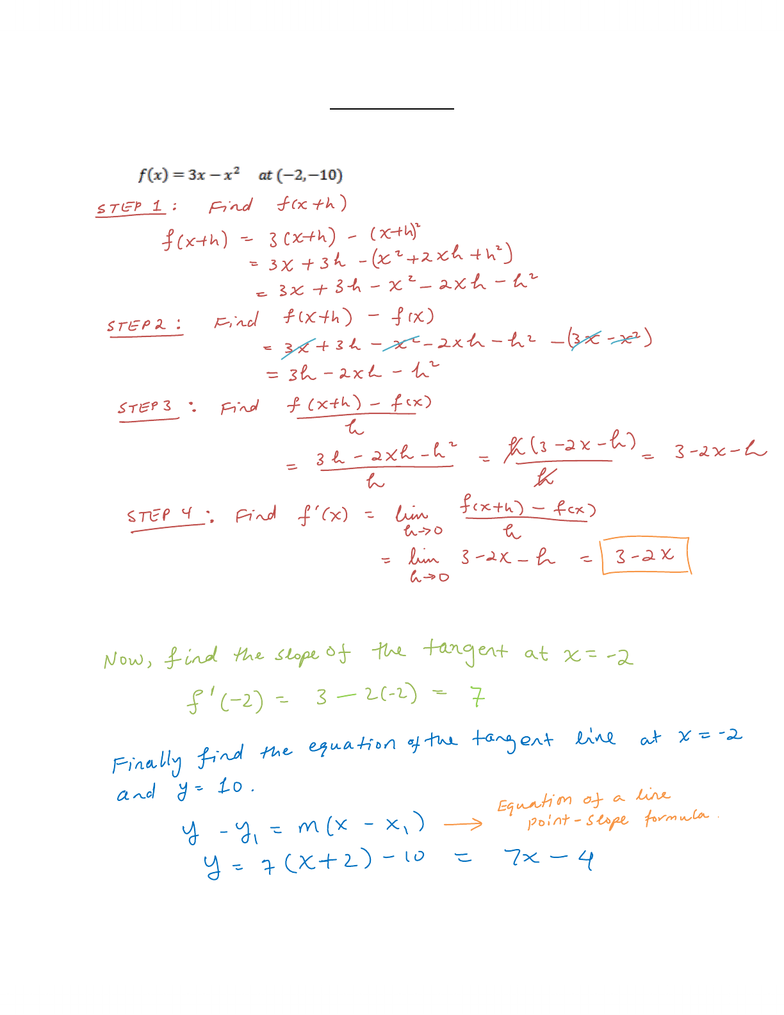 f(x) = 3x − x² at (−2,−10)
STEP 1: Find f(x+h)
f(x+h) = 3(x+h) - (x+h)²
= 3x + 3h - (x² + 2xh + h²)
= 3x + 3h - x² - 2xh - h²
STEP 2: Find f(x+h) - f(x)
= 3x + 3h - x² - 2xh - h² - (3x - x²)
= 3h - 2xh - h²
STEP 3: Find f(x+h) - f(x)
h
= 3h - 2xh - h² = h(3 - 2x - h) = 3 - 2x - h
h h
STEP 4: Find f'(x) = lim f(x+h) - f(x)
h→0 h
= lim 3 - 2x - h = 3 - 2x
h→0
Now, find the slope of the tangent at x = -2
f'(-2) = 3 - 2(-2) = 7
Finally find the equation of the tangent line at x = -2
and y = 10.
y - y₁ = m(x - x₁) → Equation of a line
point-slope formula.
y = 7(x+2) - 10 = 7x - 4